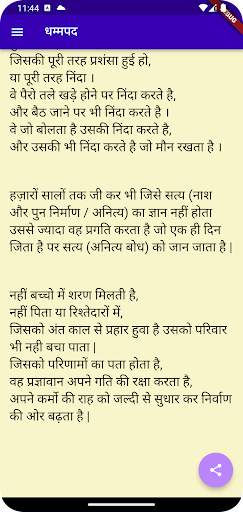 11:44
धम्मपद
जिसकी पूरी तरह प्रशंसा हुई हो,
या पूरी तरह निंदा ।
वे पैरो तले खड़े होने पर निंदा करते है,
और बैठ जाने पर भी निंदा करते है ।
वे जो बोलता है उसकी निंदा करते है,
और उसकी भी निंदा करते है जो मौन रखता है ।
हज़ारों सालों तक जी कर भी जिसे सत्य (नाश
और पुन निर्माण / अनित्य) का ज्ञान नहीं होता
उससे ज्यादा वह प्रगति करता है जो एक ही दिन
जिता है पर सत्य (अनित्य बोध) को जान जाता है |
नहीं बच्चो में शरण मिलती है,
नहीं पिता या रिश्तेदारों में,
जिसको अंत काल से प्रहार हुवा है उसको परिवार
भी नही बचा पाता |
जिसको परिणामों का पता होता है,
वह प्रज्ञावान अपने गति की रक्षा करता है,
अपने कर्मो की राह को जल्दी से सुधार कर निर्वाण
की ओर बढ़ता है |